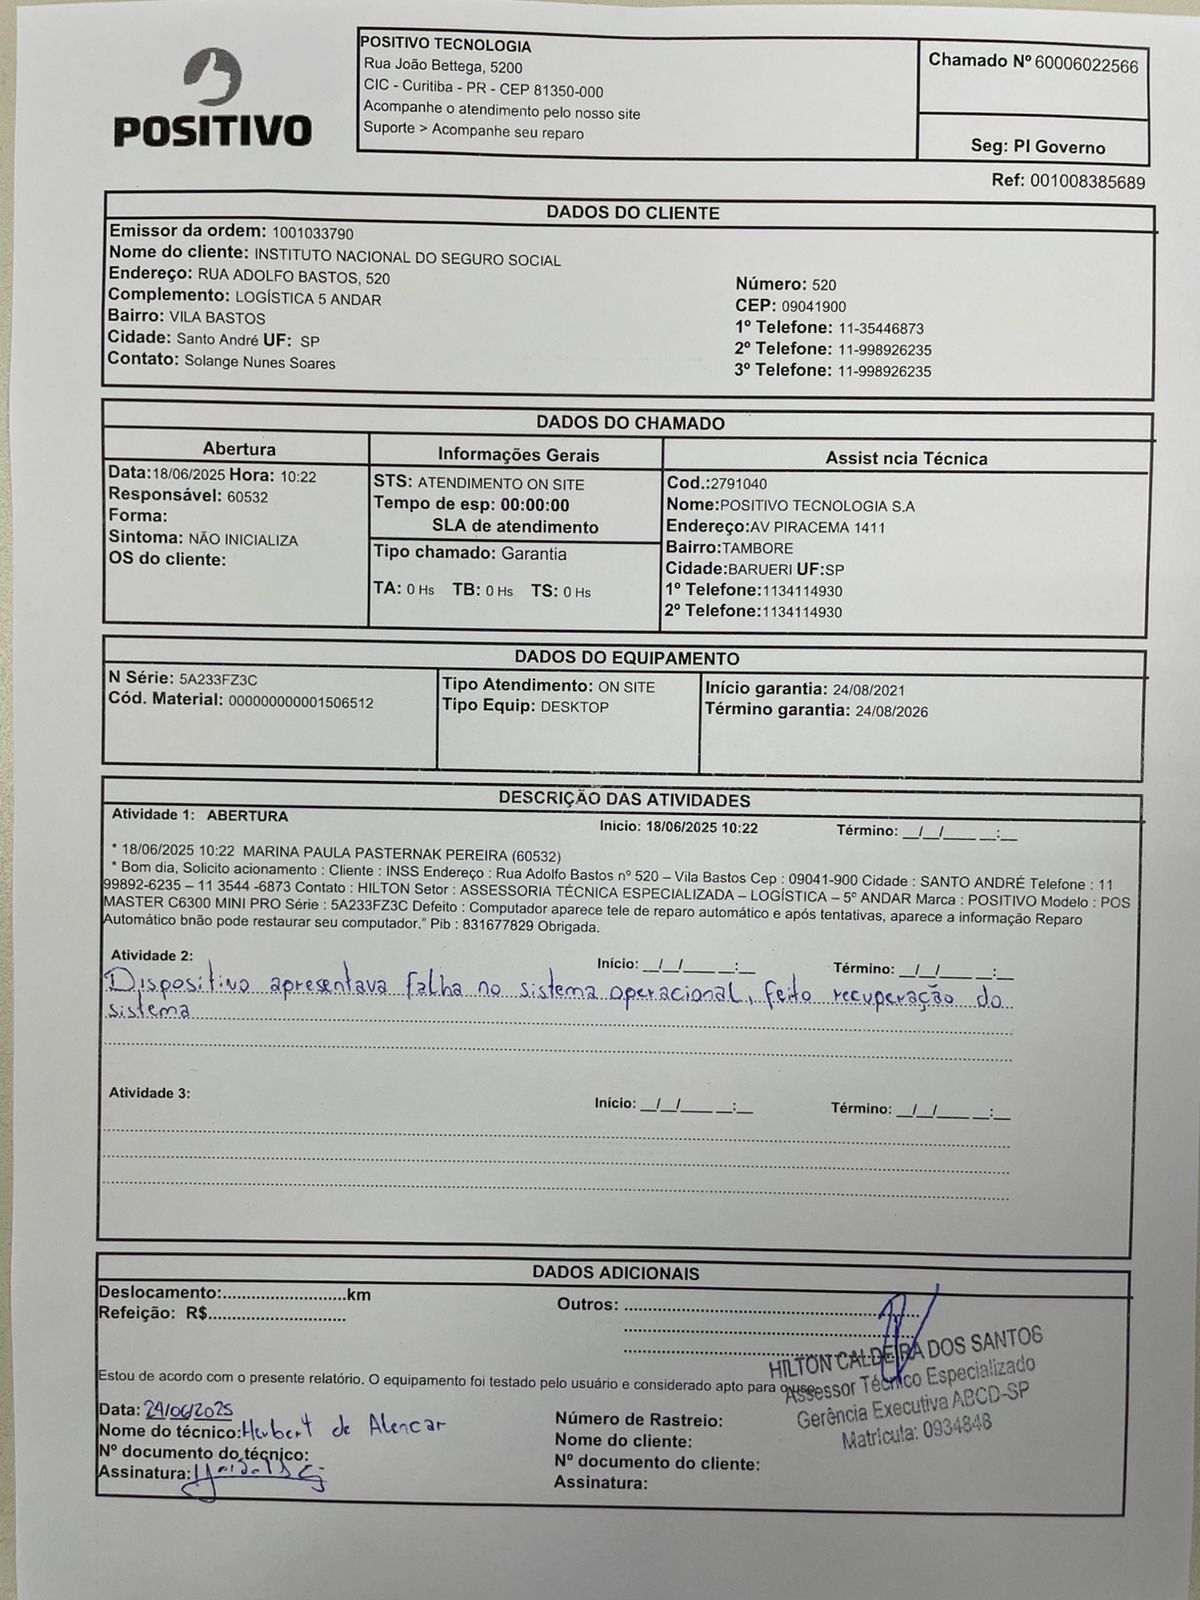 POSITIVO
POSITIVO TECNOLOGIA
Rua João Bettega, 5200
CIC - Curitiba - PR - CEP 81350-000
Acompanhe o atendimento pelo nosso site
Suporte > Acompanhe seu reparo
Chamado Nº 60006022566
Seg: PI Governo
Ref: 001008385689
DADOS DO CLIENTE
Emissor da ordem: 1001033790
Nome do cliente: INSTITUTO NACIONAL DO SEGURO SOCIAL
Endereço: RUA ADOLFO BASTOS, 520
Complemento: LOGÍSTICA 5 ANDAR
Bairro: VILA BASTOS
Cidade: Santo André UF: SP
Contato: Solange Nunes Soares
Número: 520
CEP: 09041900
1º Telefone: 11-35446873
2º Telefone: 11-998926235
3º Telefone: 11-998926235
DADOS DO CHAMADO
Abertura
Data:18/06/2025 Hora: 10:22
Responsável: 60532
Forma:
Sintoma: NÃO INICIALIZA
OS do cliente:
Informações Gerais
STS: ATENDIMENTO ON SITE
Tempo de esp: 00:00:00
SLA de atendimento
Tipo chamado: Garantia
TA: 0 Hs TB: 0 Hs TS: 0 Hs
Assist ncia Técnica
Cod.:2791040
Nome:POSITIVO TECNOLOGIA S.A
Endereço:AV PIRACEMA 1411
Bairro:TAMBORE
Cidade:BARUERI UF:SP
1º Telefone:1134114930
2º Telefone:1134114930
DADOS DO EQUIPAMENTO
N Série: 5A233FZ3C
Cód. Material: 000000000001506512
Tipo Atendimento: ON SITE
Tipo Equip: DESKTOP
Início garantia: 24/08/2021
Término garantia: 24/08/2026
DESCRIÇÃO DAS ATIVIDADES
Atividade 1: ABERTURA Início: 18/06/2025 10:22 Término: __/__/____ __:__
* 18/06/2025 10:22 MARINA PAULA PASTERNAK PEREIRA (60532)
* Bom dia, Solicito acionamento : Cliente : INSS Endereço : Rua Adolfo Bastos nº 520 – Vila Bastos Cep : 09041-900 Cidade : SANTO ANDRÉ Telefone : 11
99892-6235 – 11 3544 -6873 Contato : HILTON Setor : ASSESSORIA TÉCNICA ESPECIALIZADA – LOGÍSTICA – 5º ANDAR Marca : POSITIVO Modelo : POS
MASTER C6300 MINI PRO Série : 5A233FZ3C Defeito : Computador aparece tele de reparo automático e após tentativas, aparece a informação Reparo
Automático bnão pode restaurar seu computador.” Pib : 831677829 Obrigada.
Atividade 2: Início: __/__/____ __:__ Término: __/__/____ __:__
Dispositivo apresentava falha no sistema operacional, feito recuperação do
sistema
Atividade 3: Início: __/__/____ __:__ Término: __/__/____ __:__
DADOS ADICIONAIS
Deslocamento:.........................km
Refeição: R$............................
Outros: ............................................................
HILTON CALDEIRA DOS SANTOS
Assessor Técnico Especializado
Gerência Executiva ABCD-SP
Matrícula: 0934848
Estou de acordo com o presente relatório. O equipamento foi testado pelo usuário e considerado apto para o uso.
Data: 24/06/2025
Nome do técnico: Herbert de Alencar
Nº documento do técnico:
Assinatura:
Número de Rastreio:
Nome do cliente:
Nº documento do cliente:
Assinatura: